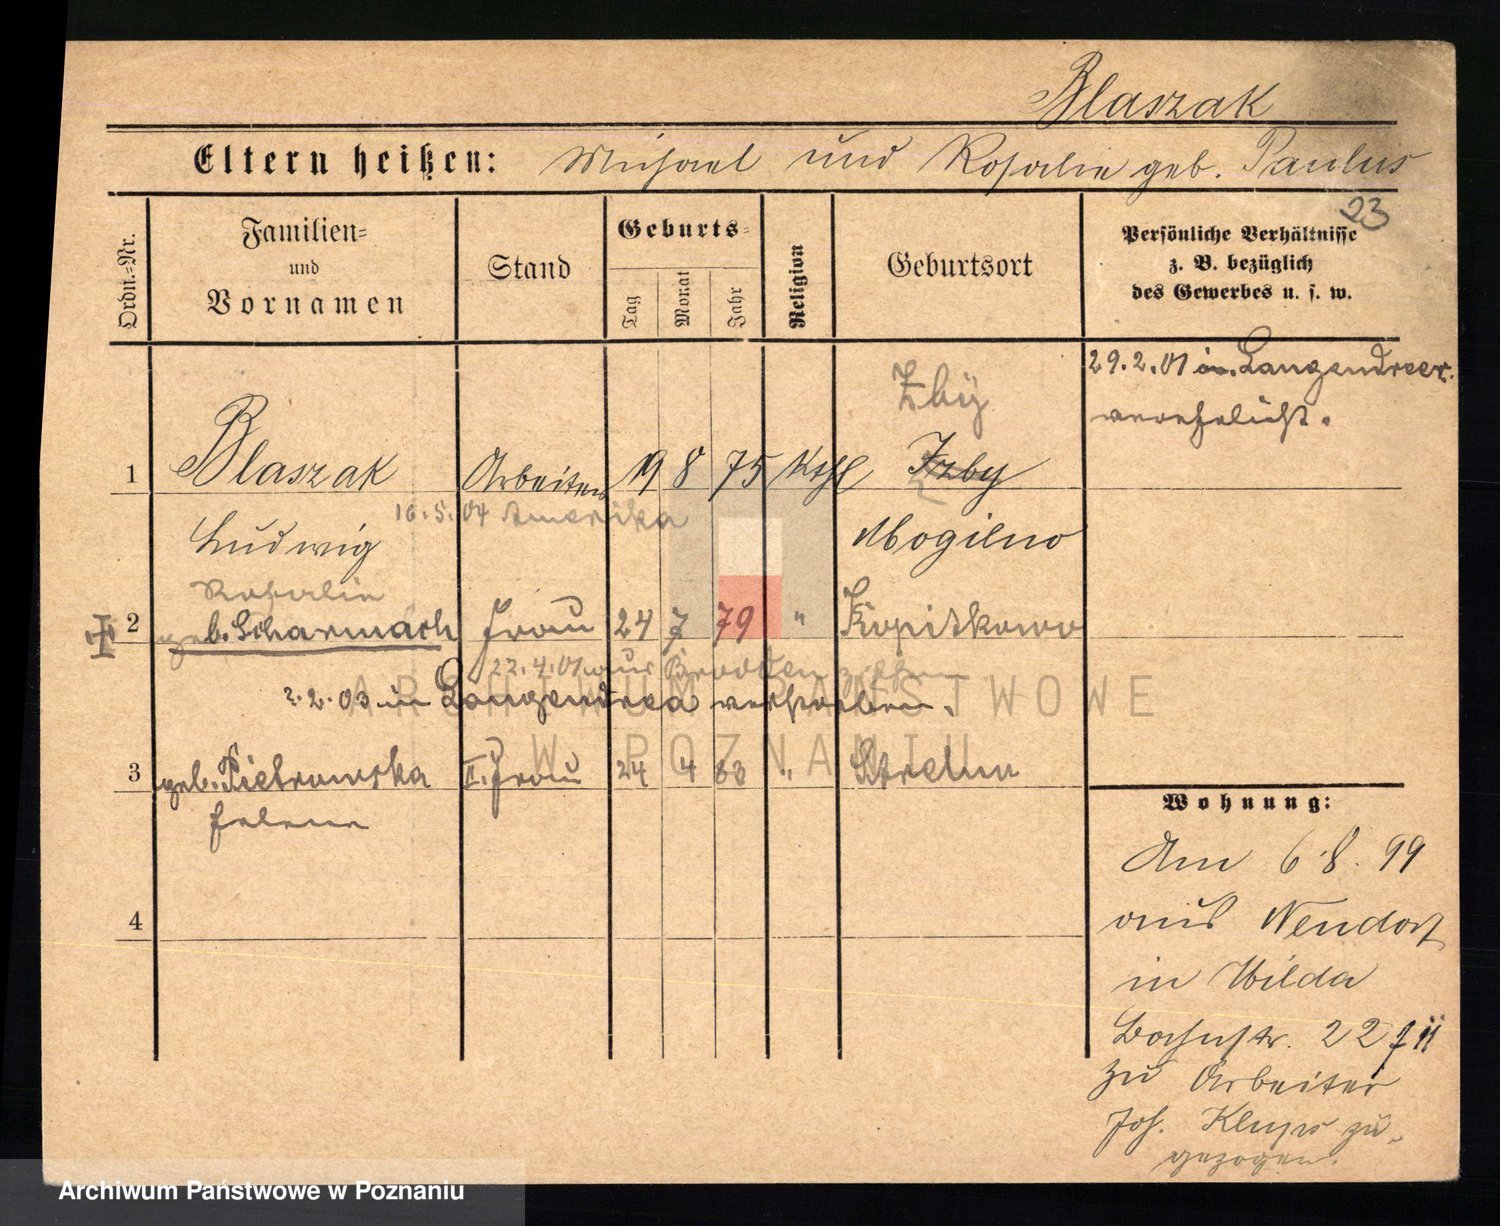 Blaszak
Eltern heißen: Michael und Rosalie geb. Paulus
23
Ordn.-Nr.
Familien-
und
Vornamen
Stand
Geburts-
Tag
Monat
Jahr
Religion
Geburtsort
Persönliche Verhältnisse
z. B. bezüglich
des Gewerbes u. s. w.
29.2.01 in Langendreer
verehelicht.
Zby
1 Blaszak Arbeiter 19 8 75 Kthl Izby
16.5.04 Amerika
Ludwig Mogilno
Rosalie
2 geb. Scharmach Frau 24 7 79 " Kopitkowo
22.4.01 aus
2.2.03 in Langendrea verstorben.
3 geb. Pietrowska II. Frau 24 4 83 " Strelno
Helene
4
Wohnung:
Am 6.8.99
aus Neudorf
in Wilda
Bachstr. 22 II
zu Arbeiter
Joh. zu-
gezogen.
ARCHIWUM PAŃSTWOWE
W POZNANIU
Archiwum Państwowe w Poznaniu